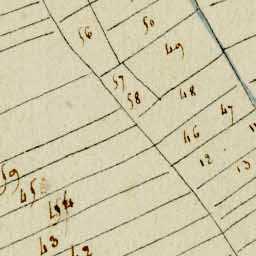 50
56
49
57
58
48
47
46
12
13
59
45
43
42